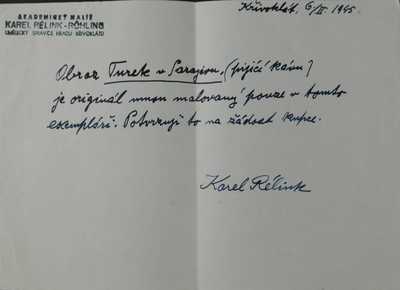 AKADEMICKÝ MALÍŘ
KAREL RÉLINK-RÖHLING
UMĚLECKÝ SPRÁVCE HRADU KŘIVOKLÁTU
Křivoklát, 6/II 1945.
Obraz Turek v Sarajevu, (pijící kávu)
je originál mnou malovaný pouze v tomto
exempláři. Potvrzuji to na žádost kupce.
Karel Rélink